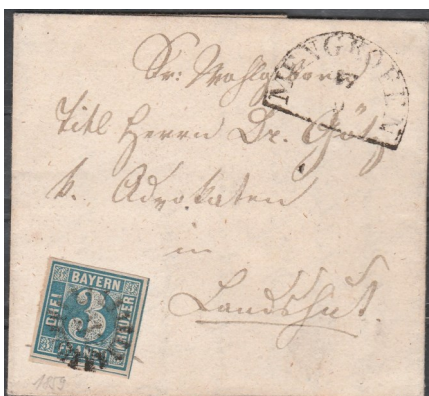 MENGKOFEN
Sr: Wohlgeboren
Titl Herrn Dr. Götz
k. Advokaten
in
Landshut.
BAYERN
DREI
3
KREUZER
FRANCO
1859